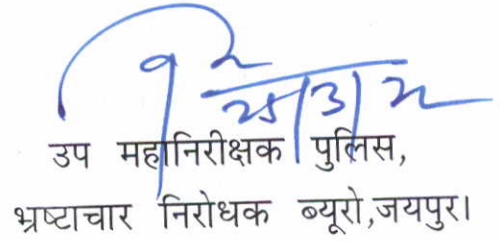 25/3/22
उप महानिरीक्षक पुलिस,
भ्रष्टाचार निरोधक ब्यूरो,जयपुर।